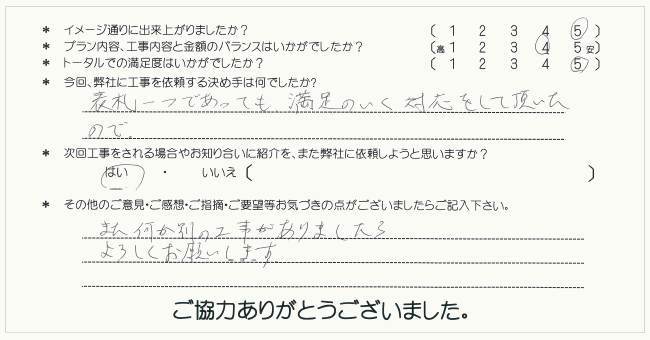 * イメージ通りに出来上がりましたか? ( 1 2 3 4 5 )
* プラン内容、工事内容と金額のバランスはいかがでしたか? (高 1 2 3 4 5 安)
* トータルでの満足度はいかがでしたか? ( 1 2 3 4 5 )
* 今回、弊社に工事を依頼する決め手は何でしたか?
表札一つであっても 満足のいく 対応をして頂いた
ので。
* 次回工事をされる場合やお知り合いに紹介を、また弊社に依頼しようと思いますか?
はい ・ いいえ ( )
* その他のご意見・ご感想・ご指摘・ご要望等お気づきの点がございましたらご記入下さい。
また何か別の工事がありましたら
よろしくお願いします
ご協力ありがとうございました。